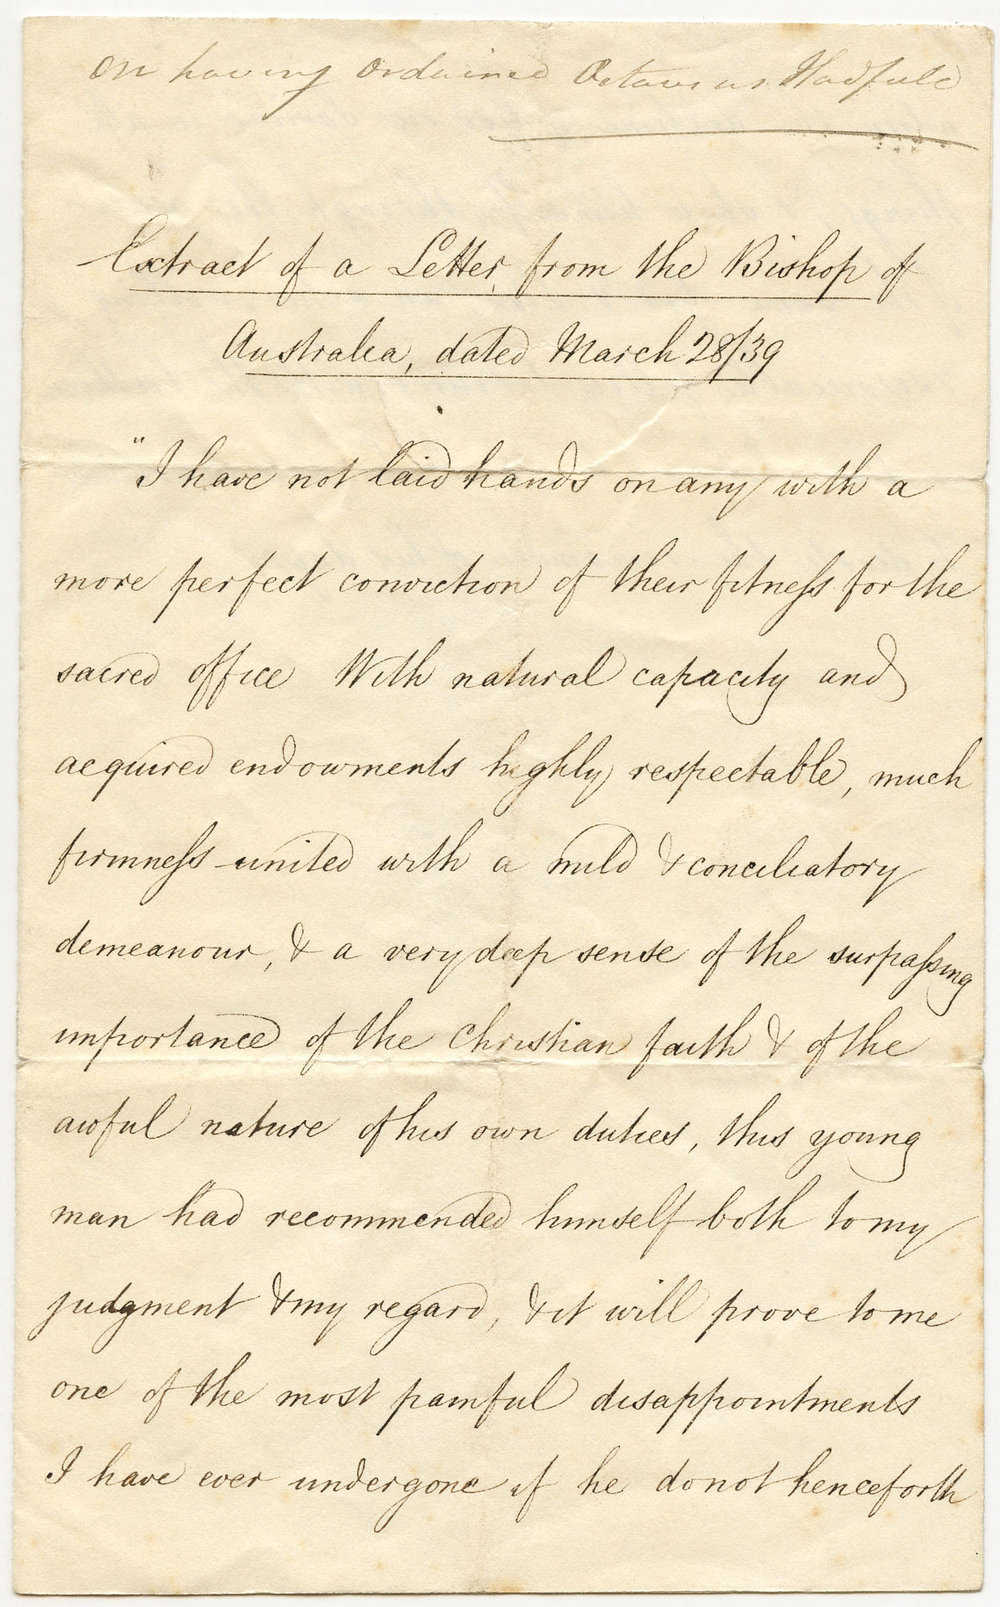 On having Ordained Octavius Hadfield
Extract of a Letter, from the Bishop of
Australia, dated March 28/39
"I have not laid hands on any with a
more perfect conviction of their fitness for the
sacred office With natural capacity and
acquired endowments highly respectable, much
firmness united with a mild & conciliatory
demeanour, & a very deep sense of the surpassing
importance of the Christian faith & of the
awful nature of his own duties, this young
man had recommended himself both to my
judgment & my regard, & it will prove to me
one of the most painful disappointments
I have ever undergone if he do not henceforth